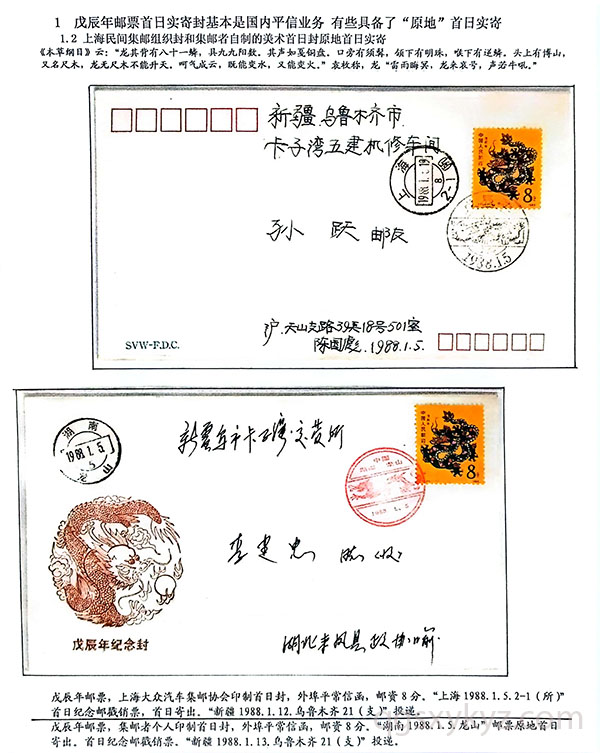 1 戊辰年邮票首日实寄封基本是国内平信业务 有些具备了“原地”首日实寄
1.2 上海民间集邮组织封和集邮者自制的美术首日封原地首日实寄
《本草纲目》云：“龙其背有八十一鳞，具九九阳数。其声如戛铜盘。口旁有须髯，颌下有明珠，喉下有逆鳞。头上有博山，
又名尺木，龙无尺木不能升天。呵气成云，既能变水，又能变火。”袁枚称，龙“雷雨晦冥，龙来哀号，声若牛吼。”
新疆 乌鲁木齐市
卡子湾五建机修车间
上海
1988.1.5
8
2-1
中国人民邮政
8分
1988.1.5
孙 跃 邮友
沪.天山支路39弄18号501室
陈国彪.1988.1.5.
SVW-F.D.C.
湖南
1988.1.5.
龙山
中国人民邮政
8分
中国
湖南 龙山
1988.1.5
李建忠
戊辰年纪念封
湖北来凤县
戊辰年邮票，上海大众汽车集邮协会印制首日封，外埠平常信函，邮资 8 分。“上海 1988.1.5.2-1（所）”
首日纪念邮戳销票，首日寄出。“新疆 1988.1.12.乌鲁木齐 21（支）”投递。
戊辰年邮票，集邮者个人印制首日封，外埠平常信函，邮资 8 分。“湖南 1988.1.5.龙山”邮票原地首日
寄出。“新疆 1988.1.13.乌鲁木齐 21（支）”投递。